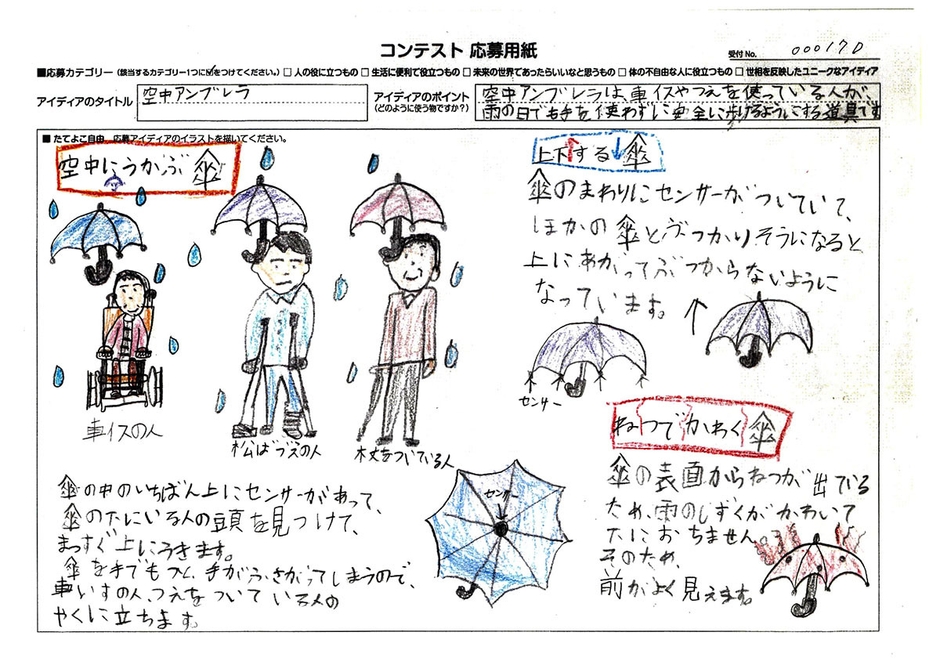 コンテスト 応募用紙
受付No. 000170
■応募カテゴリー（該当するカテゴリー1つに☑をつけてください。）□ 人の役に立つもの □ 生活に便利で役立つもの □ 未来の世界であったらいいなと思うもの □ 体の不自由な人に役立つもの □ 世相を反映したユニークなアイディア
アイディアのタイトル
空中アンブレラ
アイディアのポイント
（どのように使う物ですか？）
空中アンブレラは、車イスやつえを使っている人が、
雨の日でも手を使わずに安全に歩けるようにする道具です
■ たてよこ自由 応募アイディアのイラストを描いてください。
空中にうかぶ傘
車イスの人
松ばづえの人
杖をついている人
傘の中のいちばん上にセンサーがあって、
傘の下にいる人の頭を見つけて、
まっすぐ上にうきます。
傘を手でもつと、手がふさがってしまうので、
車いすの人、つえをついている人の
やくに立ちます。
センサー
上下する傘
傘のまわりにセンサーがついていて、
ほかの傘とぶつかりそうになると
上にあがってぶつからないように
なっています。
↑
センサー
ねつでかわく傘
傘の表面からねつが出ている
ため、雨のしずくがかわいて
下におちません。
そのため、
前がよく見えます。